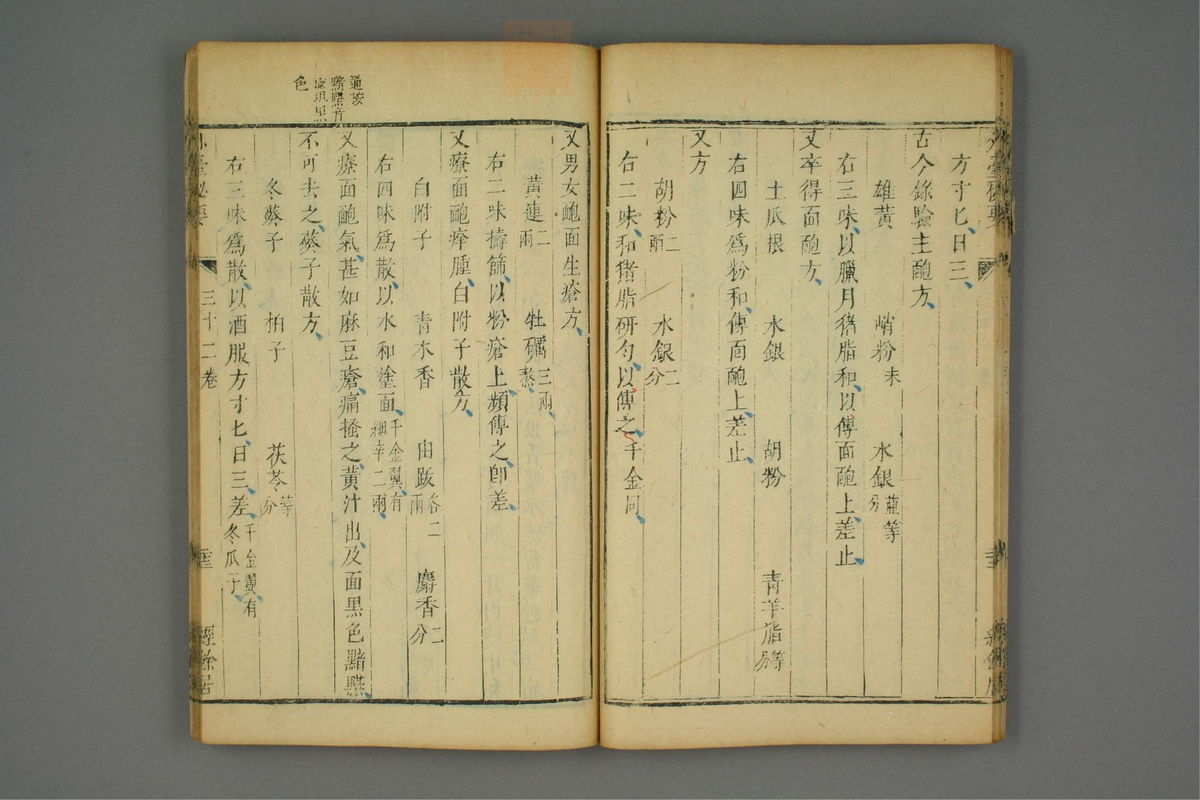 方寸匕日三
古今錄驗主皰方
雄黃 硝粉末 水銀並等分
右三味以臘月猪脂和以傅面皰上差止
又卒得面皰方
土瓜根 水銀 胡粉 青羊脂等分
右四味為粉和傅面皰上差止
又方
胡粉二兩 水銀二分
右二味和猪脂研勻以傅之千金同
又男女皰面生瘡方
黃連二兩 牡礪三兩熬
右二味擣篩以粉瘡上頻傅之即差
又療面皰痒腫白附子散方
白附子 青木香 由跋各二兩 麝香二分
右四味為散以水和塗面千金翼有細辛二兩
又療面皰氣甚如麻豆瘡痛搔之黃汁出及面黑色黯䵳
不可去之葵子散方
冬葵子 柏子 茯苓等分
右三味爲散以酒服方寸匕日三差千金翼有冬瓜子
外臺秘要 三十二卷 經餘居